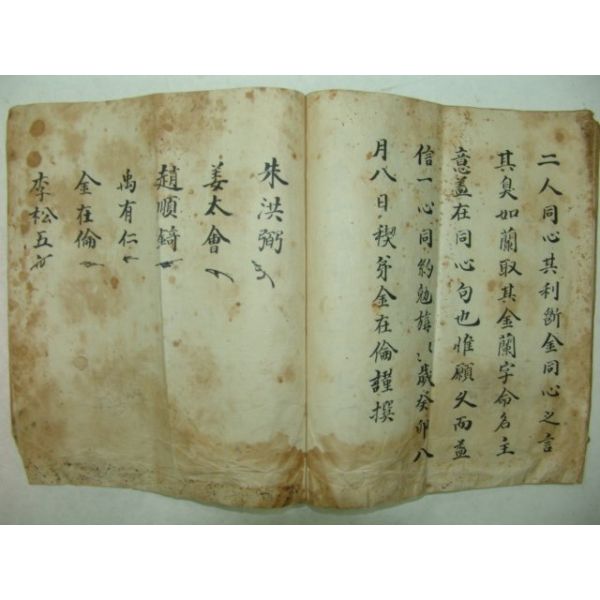 二人同心其利斷金同心之言
其臭如蘭取其金蘭字命名主
意盖在同心句也惟願久而益
信一心同約勉旃 歲癸卯八
月八日稧弟金在倫謹撰
朱洪弼
姜太會
趙順錡
禹有仁
金在倫
李松五